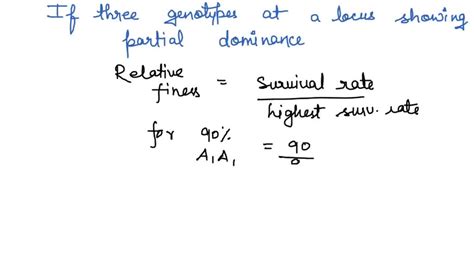 If three genotypes at a locus showing
partial dominance
Relative finess = survival rate / highest surv. rate
for 90% A1A1 = 90 / 9